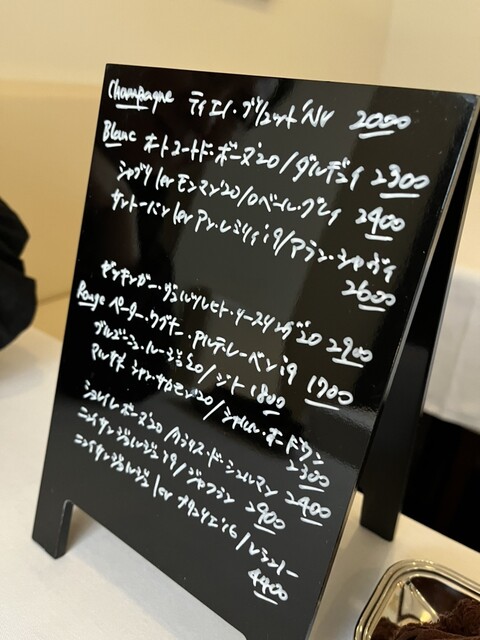 Champagne ティエノ・ブリュット NV 2000
Blanc オートコート・ド・ボーヌ'20/ダルデュイ 2300
シャブリ1erモンマン'20/ロベール・グレイ 2400
サントーバン1erアン・レミリィ'19/アラン・シャヴィ
2600
ゼッキンガー・ヴュルツレヒト・リースリング'20 2900
Rouge ペーター・ワグナー・アルテレーベン'19 1700
ブルゴーニュ・ルージュ'20/ジト 1800
マルサネ シャン・サロモン'20/シャルル・オードワン
2300
ショレイレボーヌ'20/カシス・ド・シュルマン 2400
ニュイサンジョルジュ'19/ジャフラン 2900
ニュイサンジョルジュ1er プリュリエ'16/レシュノー
4400